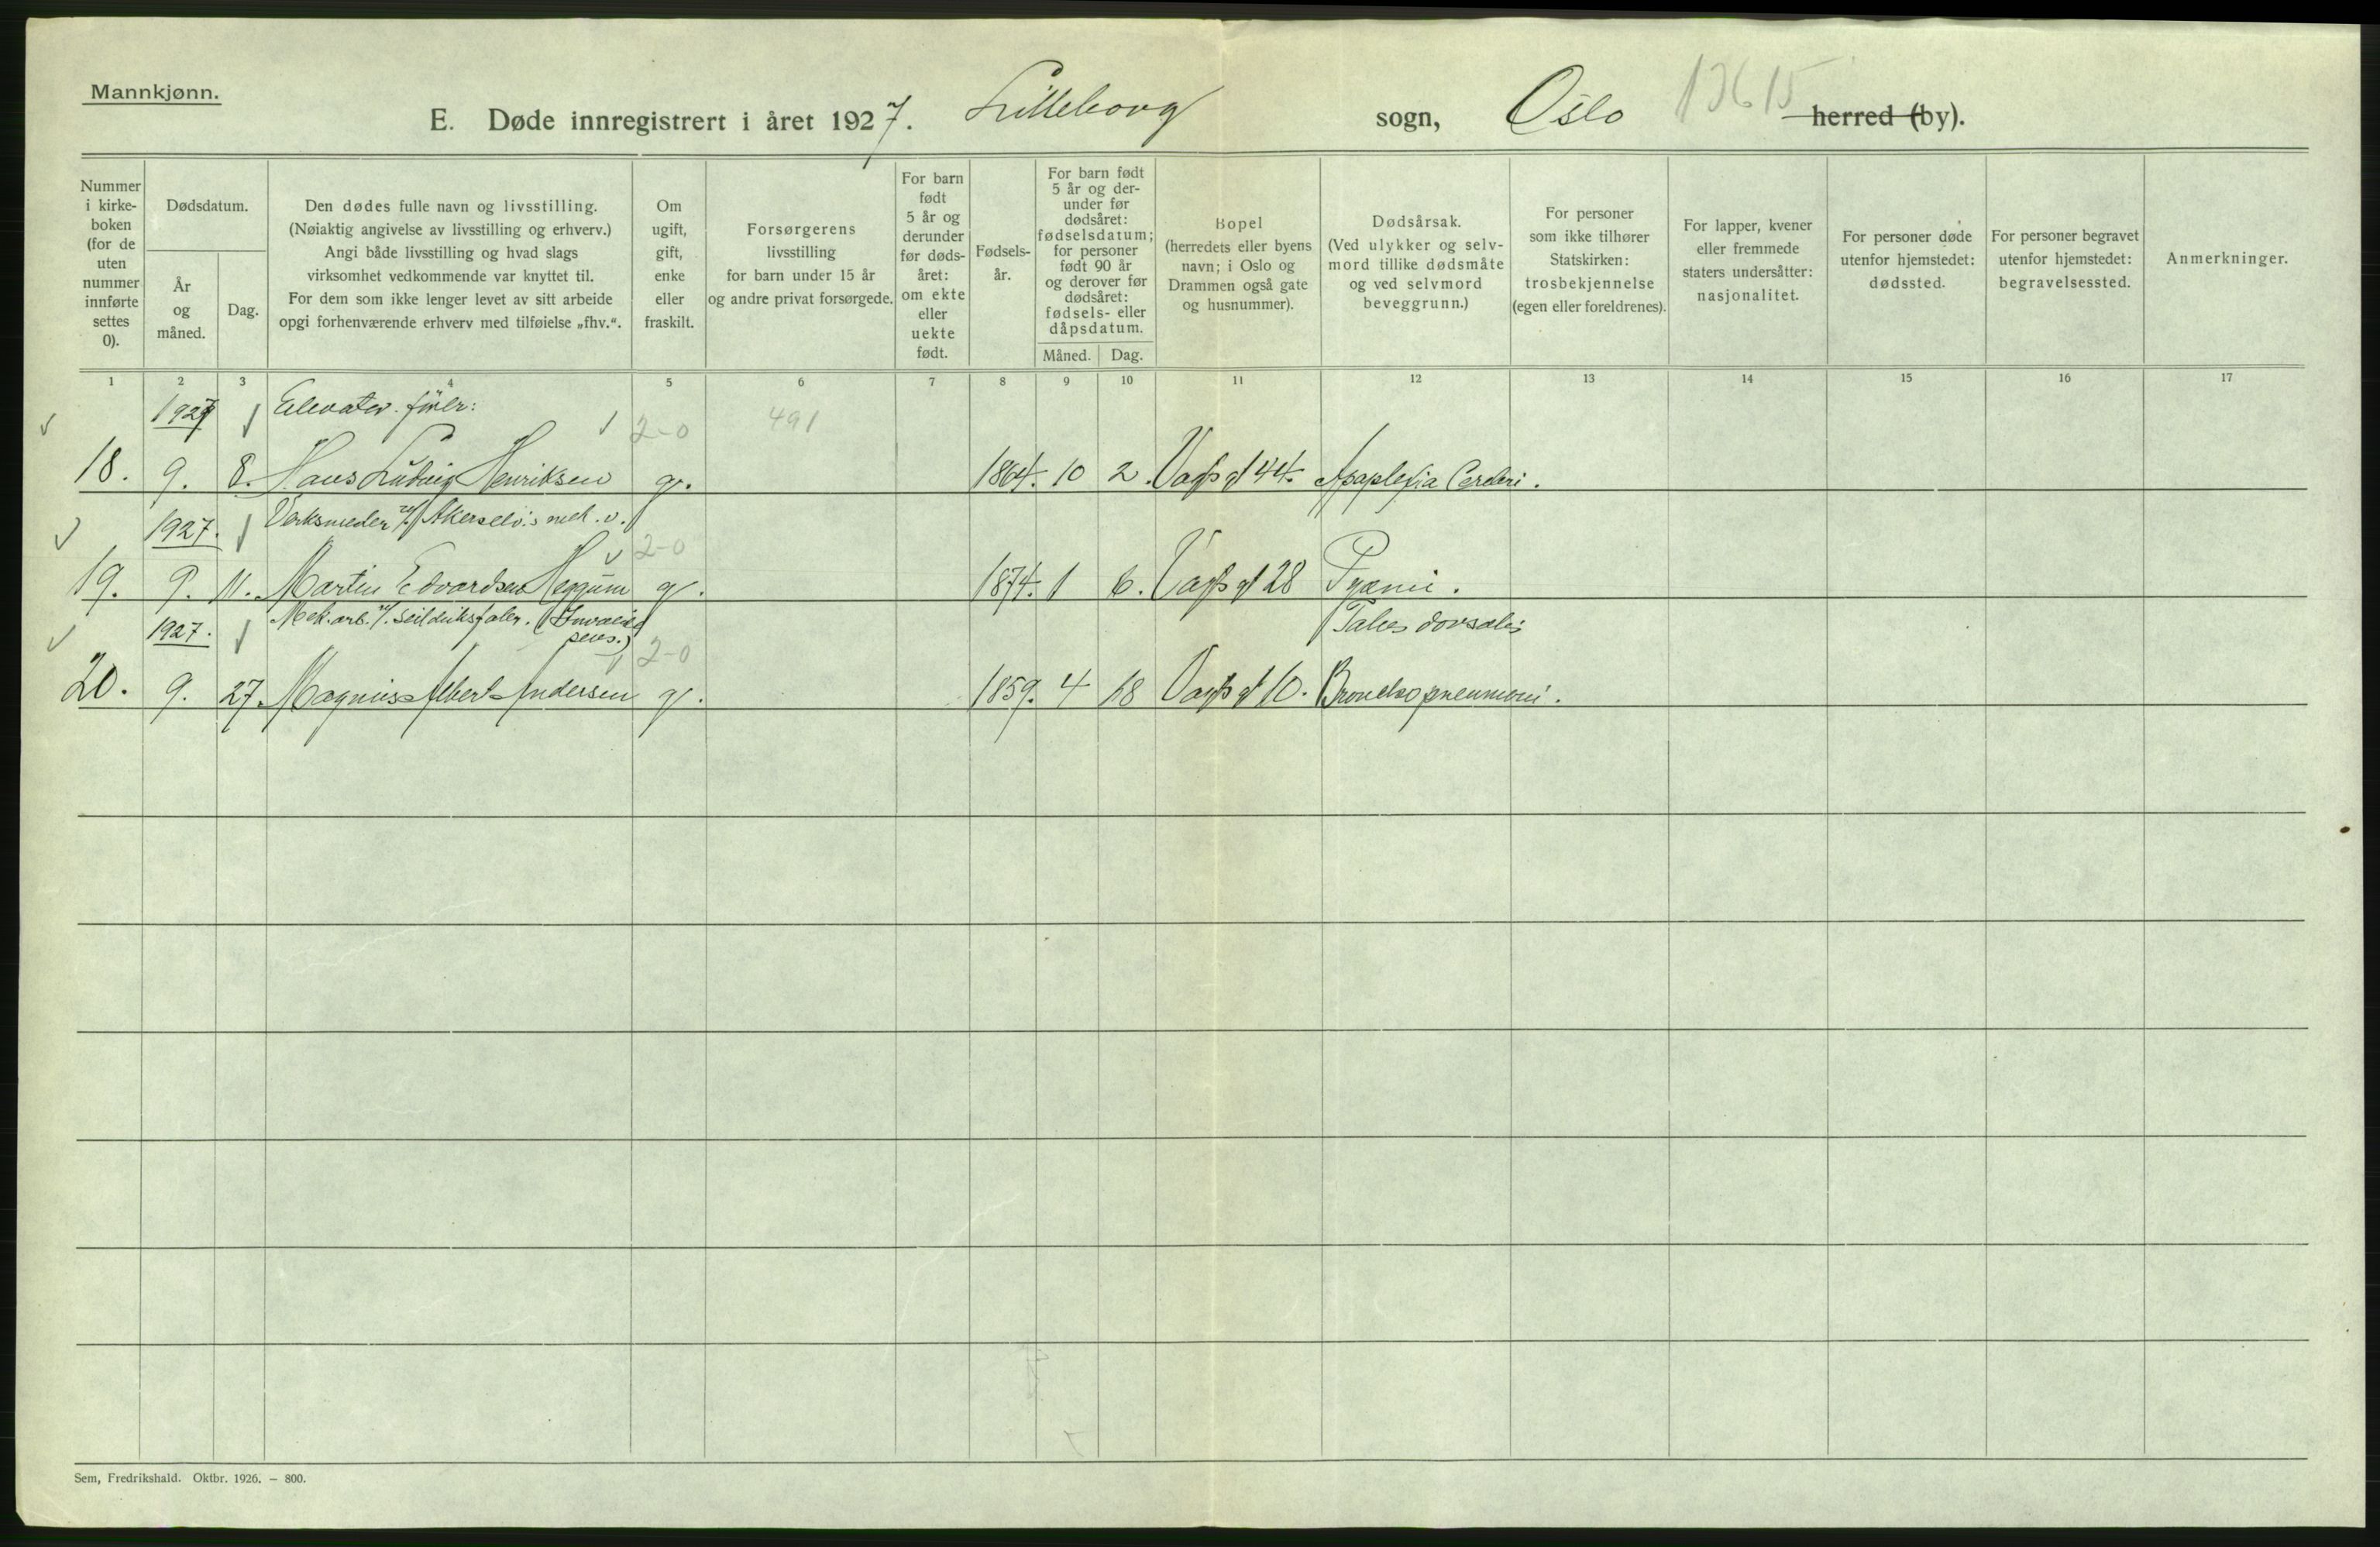 Mannkjønn.
E. Døde innregistrert i året 1927. Lilleborg sogn, Oslo 13615 herred (by).
Nummer i kirke-boken (for de uten nummer innførte settes 0).
Dødsdatum.
År og måned.
Dag.
Den dødes fulle navn og livsstilling.
(Nøiaktig angivelse av livsstilling og erhverv.)
Angi både livsstilling og hvad slags
virksomhet vedkommende var knyttet til.
For dem som ikke lenger levet av sitt arbeide
opgi forhenværende erhverv med tilføielse „fhv.“.
Om ugift, gift, enke eller fraskilt.
Forsørgerens
livsstilling
for barn under 15 år
og andre privat forsørgede.
For barn født 5 år og derunder før døds-året: om ekte eller uekte født.
Fødsels-år.
For barn født 5 år og der-under før dødsåret: fødselsdatum; for personer født 90 år og derover før dødsåret: fødsels- eller dåpsdatum.
Måned. Dag.
Bopel
(herredets eller byens
navn; i Oslo og
Drammen også gate
og husnummer).
Dødsårsak.
(Ved ulykker og selv-
mord tillike dødsmåte
og ved selvmord
beveggrunn.)
For personer
som ikke tilhører
Statskirken:
trosbekjennelse
(egen eller foreldrenes).
For lapper, kvener
eller fremmede
staters undersåtter:
nasjonalitet.
For personer døde
utenfor hjemstedet:
dødssted.
For personer begravet
utenfor hjemstedet:
begravelsessted.
Anmerkninger.
1 2 3 4 5 6 7 8 9 10 11 12 13 14 15 16 17
1927 Elevator. fører: 2-0 491
18. 9. 8. Hans Ludvig Henriksen g. 1864. 10 2. Vogts gt 44. Apoplexia Cerebri.
1927. Verksmeder v/ Akerselv.s mek. v. 2-0
19. 9. 11. Martin Edvardsen Heggum g. 1874. 1 6. Vogts gt 28 Pyæmi.
1927. Mek. arb. v/. Seilduksfabr. (Invalide pens.) 2-0 Tabes dorsalis
20. 9. 27. Magnus Albert Andersen g. 1859. 4 18 Vogts gt 10. Bronchopneumoni.
Sem, Fredrikshald. Oktbr. 1926. — 800.